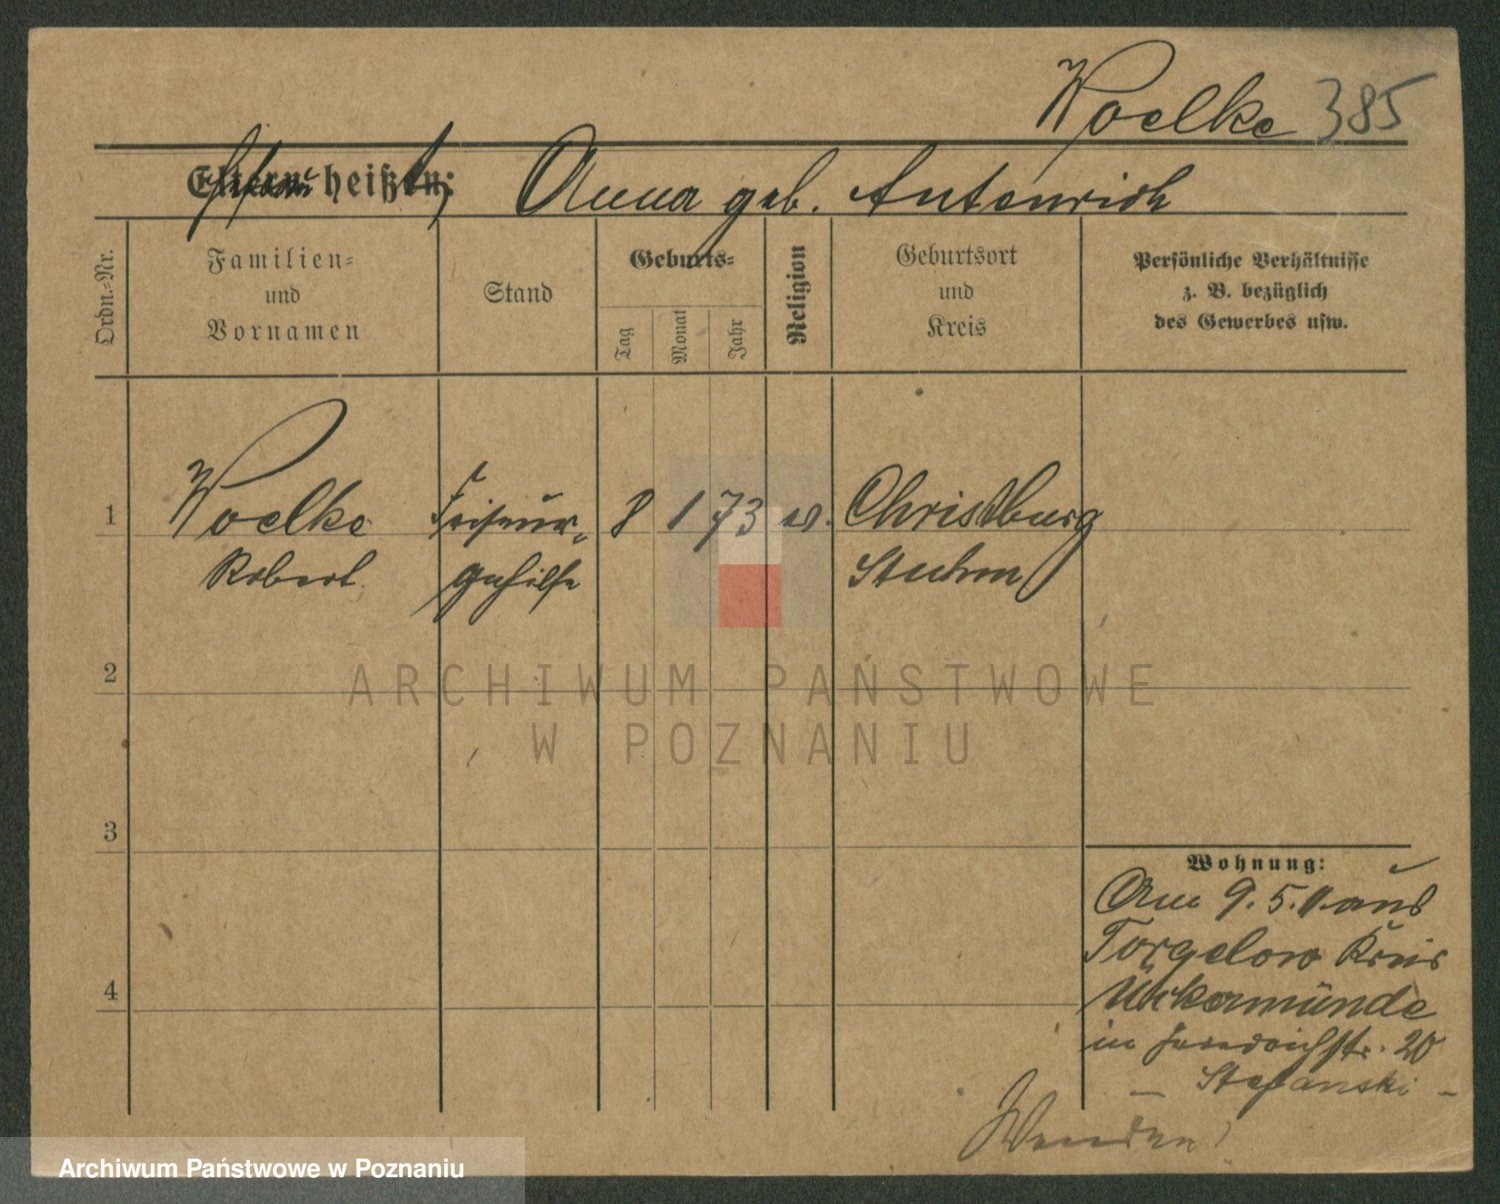 Woelke 385
Ehefrau heißt: Anna geb. Antenrich
Ordn.-Nr.
Familien-
und
Vornamen
Stand
Geburts-
Tag
Monat
Jahr
Religion
Geburtsort
und
Kreis
Persönliche Verhältnisse
z. B. bezüglich
des Gewerbes usw.
1 Woelke Friseur- 8 1 73 ev. Christburg
Robert gehilfe Stuhm
2
3
4
Wohnung:
Am 9. 5. 11. aus
Torgelow Kreis
Ückermünde
in Friedrichstr. 20
- Stefanski -
Wenden!
ARCHIWUM PAŃSTWOWE
W POZNANIU
Archiwum Państwowe w Poznaniu